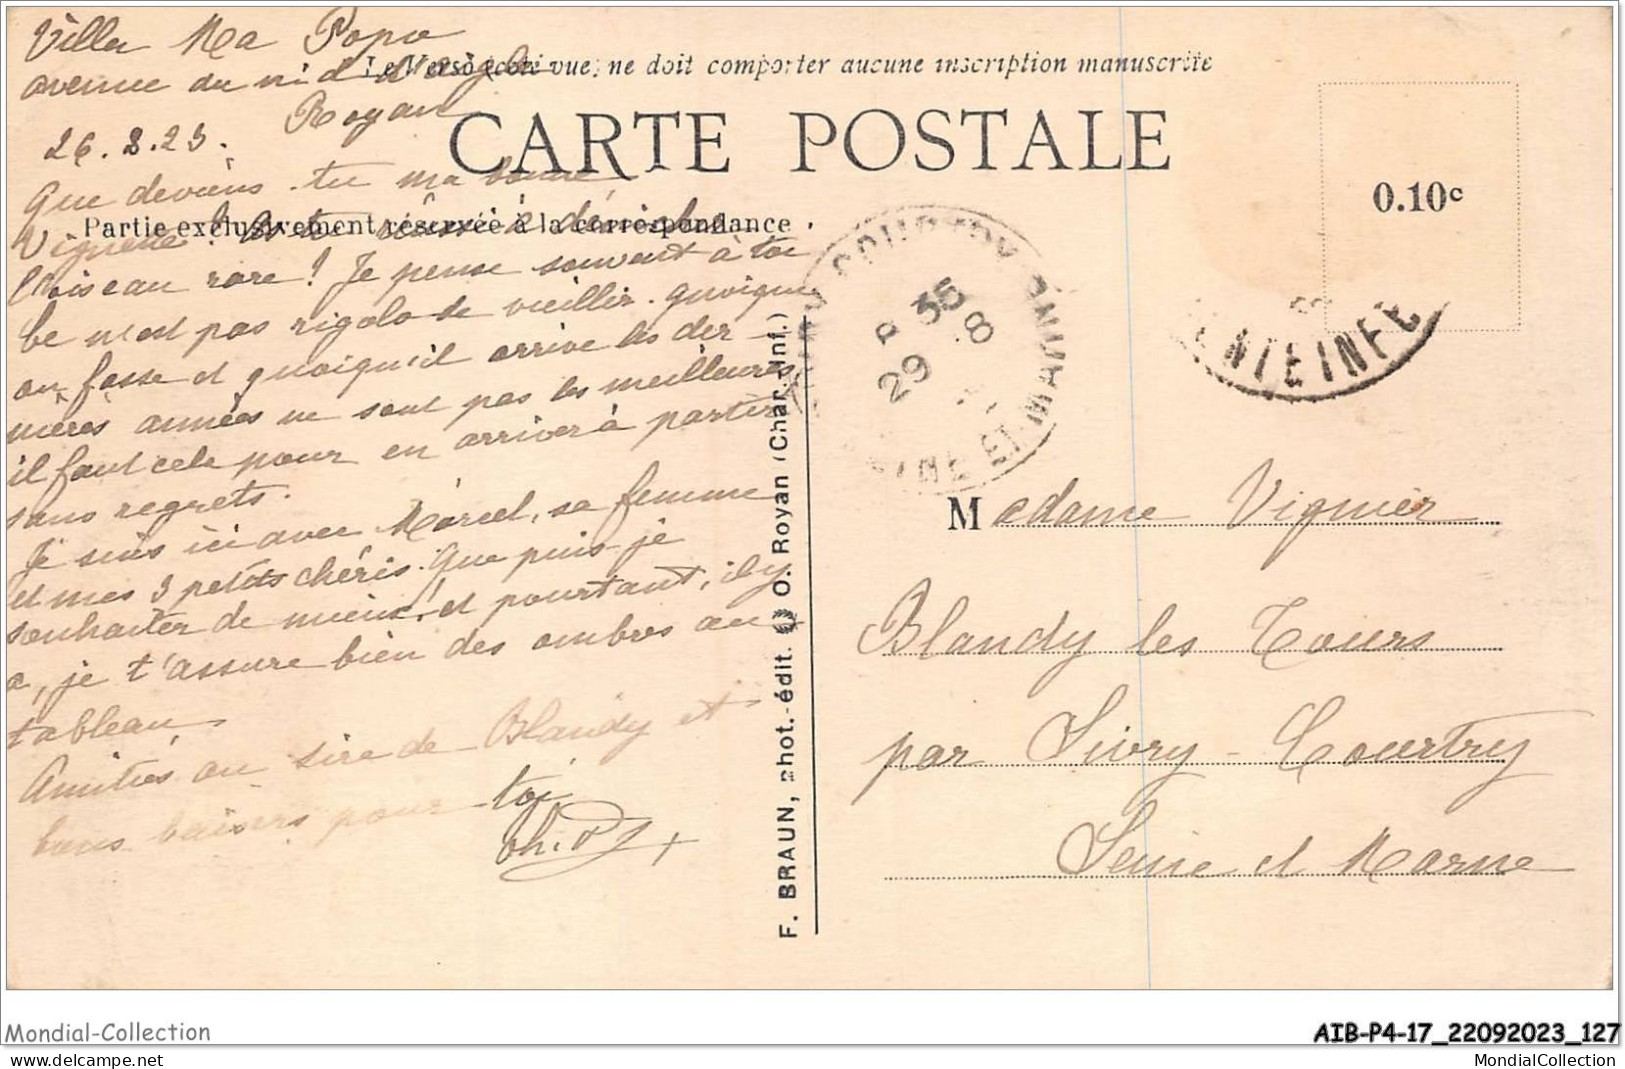 Villa Ma
avenue du nid d'aigle
Royan
26.8.23.
Le Verso côté vue, ne doit comporter aucune inscription manuscrite
CARTE POSTALE
Partie exclusivement réservée à la correspondance
0.10c
Que deviens-tu ma bonne
Vignette ! As-tu réussi à dénicher
l'oiseau rare ! Je pense souvent à toi
Ce n'est pas rigolo de vieillir. Quoiqu'
on fasse et quoiqu'il arrive les der-
nières années ne sont pas les meilleures
il faut cela pour en arriver à partir
sans regrets.
Je suis ici avec Marcel, sa femme
et mes 3 petits chéris. Que puis-je
souhaiter de mieux ! et pourtant, il y
a, je t'assure bien des ombres au
tableau
Amitiés au sire de Blandy et
bons baisers pour toi
F. BRAUN, phot.-édit. O. Royan (Char.-Inf.)
COURTRY
SEINE ET MARNE
35
29 8
NTE INFE
Madame Vignier
Blandy les Tours
par Sivry-Courtry
Seine et Marne
Mondial-Collection
AIB-P4-17_22092023_127
MondialCollection